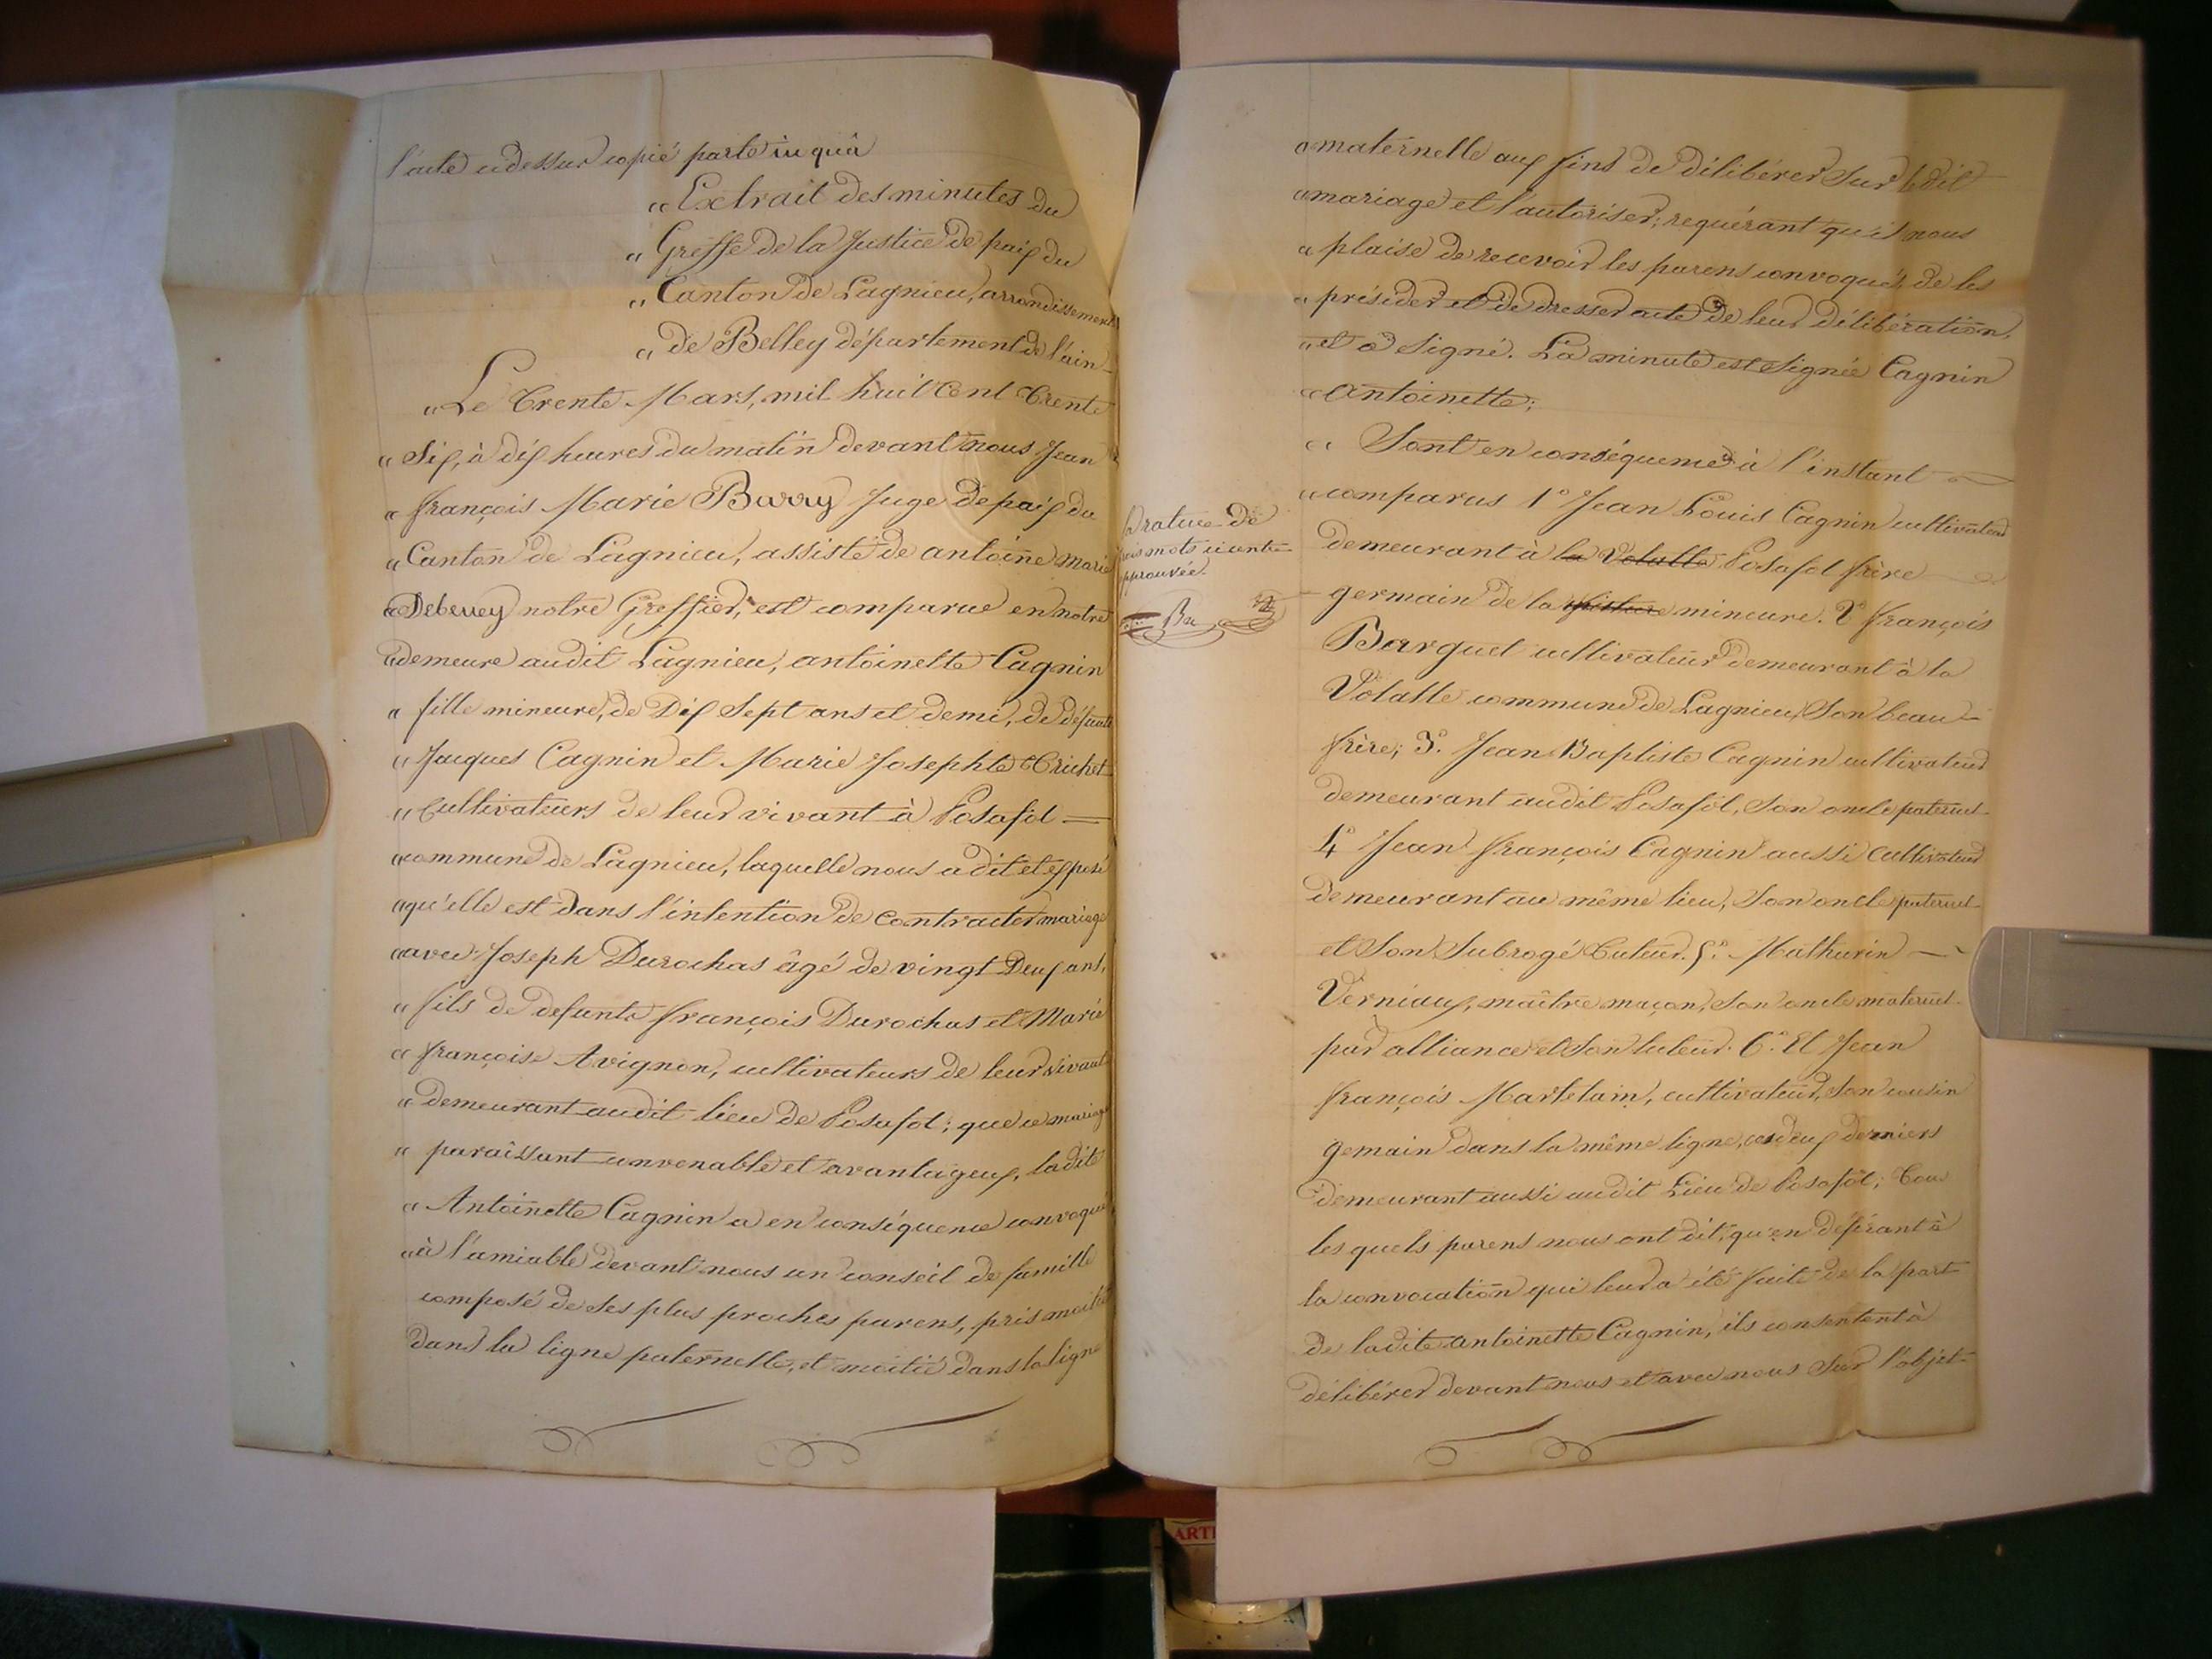 l'acte cidessus copié porte iu qu'à
„ Extrait des minutes du
„ Greffe de la Justice de paix du
„ Canton de Lagnieu, arrondissement
„ de Belley département de l'ain
„ Le Trente Mars, mil huit Cent Trente
„ Six, à dix heures du matin devant nous Jean
„ françois Marie Barry Juge de paix du
„ Canton de Lagnieu, assisté de antoine marie
„ Debeney notre Greffier, est comparue en notre
„ demeure audit Lagnieu, antoinette Cagnin
„ fille mineure, de Dix Sept ans et demi, de défunts
„ Jacques Cagnin et Marie Josephte Trichet
„ Cultivateurs de leur vivant à Posafol
„ commune de Lagnieu, laquelle nous a dit et exposé
„ qu'elle est dans l'intention de contracter mariage
„ avec Joseph Durochas âgé de vingt Deux ans,
„ fils de defunts françois Durochas et Marie
„ françoise Avignon, cultivateurs de leur vivant
„ demeurant audit lieu de Posafol; que ce mariage
„ paraissant convenable et avantageux, ladite
„ Antoinette Cagnin a en conséquence convoqué
„ à l'amiable devant nous un conseil de famille
composé de ses plus proches parens, pris moitié
dans la ligne paternelle, et moitié dans la ligne
„ maternelle aux fins de délibérer sur ledit
„ mariage et l'autoriser; requérant qu'il nous
„ plaise de recevoir les parens convoqués, de les
„ présider et de dresser acte de leur délibération,
„ et a signé. La minute est signée Cagnin
„ Antoinette;
„ Sont en conséquence à l'instant
„ comparus 1° Jean Louis Cagnin cultivateur
demeurant à la Volatte Posafol frère
germain de la mineure. 2° françois
Barquet cultivateur demeurant à la
Volatte commune de Lagnieu, Son beau-
frère; 3° Jean Baptiste Cagnin cultivateur
demeurant audit Posafol, Son oncle paternel
4° Jean françois Cagnin aussi Cultivateur
demeurant au même lieu, Son oncle paternel
et Son Subrogé Tuteur. 5° Mathurin
Verniaux, maître maçon, Son oncle maternel
par alliance et Son tuteur. 6° Et Jean
françois Martelain, cultivateur, Son cousin
gemain dans la même ligne, ces deux derniers
demeurant aussi audit Lieu de Posafol; Tous
les quels parens nous ont dit, qu'en déférant à
la convocation qui leur a été faite de la part
de ladite antoinette Cagnin, ils consentent à
délibérer devant nous et avec nous Sur l'objet
Rature de
trois mots ci contre
approuvée.
Ba
ARTI